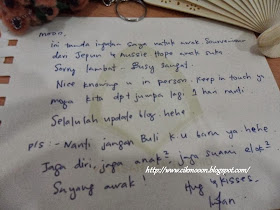 moon,
ini tanda ingatan saya untuk awak Souvenior
dari Jepun & Aussie Hope awak suka
Sorry lambat - Busy sangat.
Nice knowing u in person. Keep in touch &
moga kita dpt jumpa lagi 1 hari nanti
Selalulah update blog. hehe
p/s :- Nanti jangan Buli K.U baru ya hehe
Jaga diri, jaga anak², jaga suami elok²
http://www.cikmooon.blogspot.com/
Sayang awak !
Hug & Kisses.